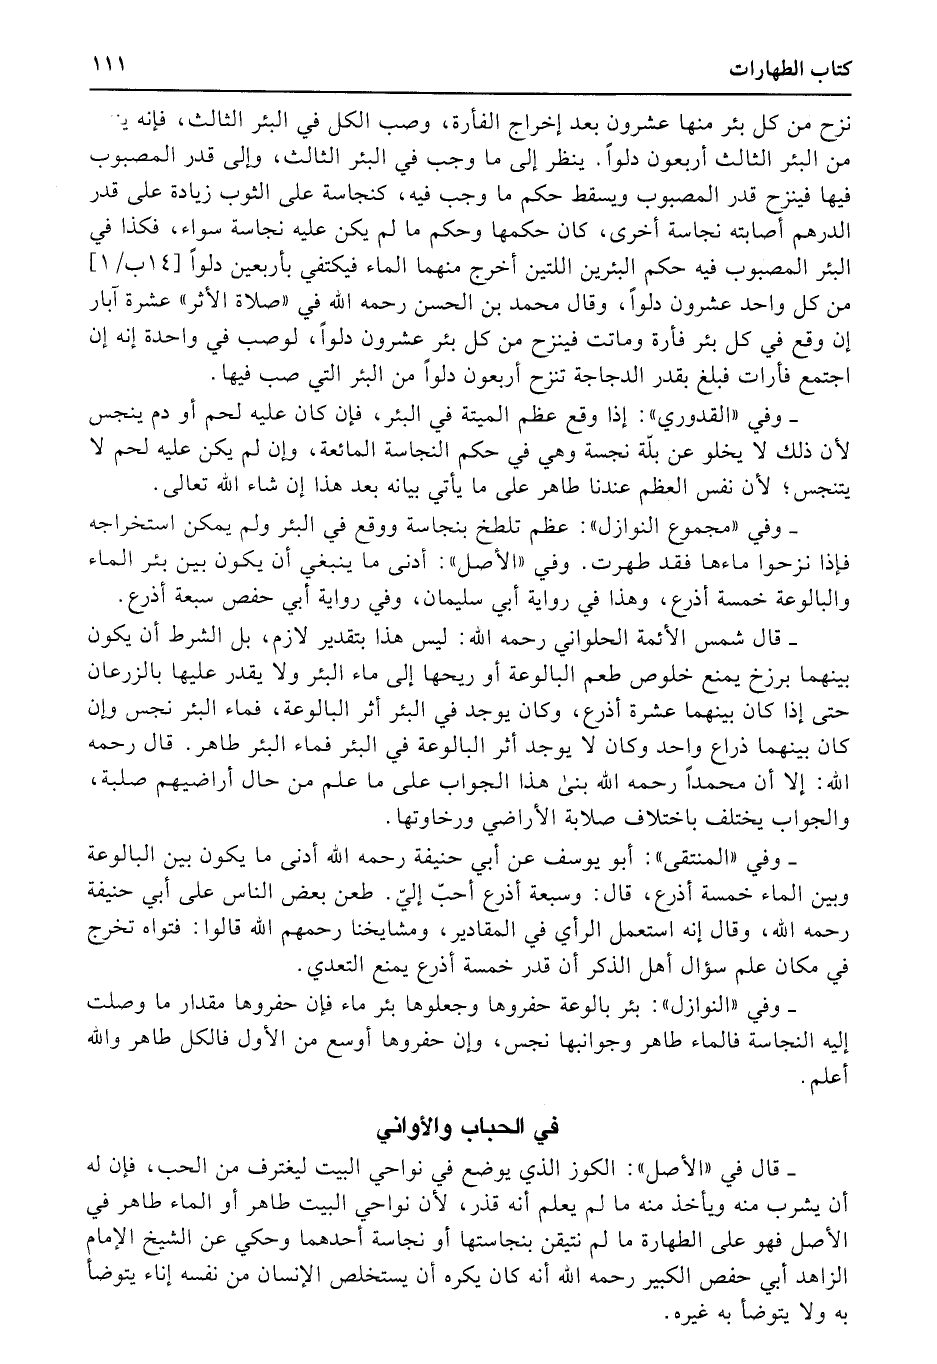 كتاب الطهارات
١١١
نزح من كل بئر منها عشرون بعد إخراج الفأرة، وصب الكل في البئر الثالث، فإنه
من البئر الثالث أربعون دلواً. ينظر إلى ما وجب في البئر الثالث، وإلى قدر المصبوب
فيها فينزح قدر المصبوب ويسقط حكم ما وجب فيه، كنجاسة على الثوب زيادة على قدر
الدرهم أصابته نجاسة أخرى، كان حكمها وحكم ما لم يكن عليه نجاسة سواء، فكذا في
البئر المصبوب فيه حكم البئرين اللتين أخرج منهما الماء فيكتفي بأربعين دلواً [١٤ب/١]
من كل واحد عشرون دلواً، وقال محمد بن الحسن رحمه الله في «صلاة الأثر» عشرة آبار
إن وقع في كل بئر فأرة وماتت فينزح من كل بئر عشرون دلواً، لوصب في واحدة إنه إن
اجتمع فأرات فبلغ بقدر الدجاجة تنزح أربعون دلواً من البئر التي صب فيها.
ـ وفي «القدوري»: إذا وقع عظم الميتة في البئر، فإن كان عليه لحم أو دم ينجس
لأن ذلك لا يخلو عن بلّة نجسة وهي في حكم النجاسة المائعة، وإن لم يكن عليه لحم لا
يتنجس؛ لأن نفس العظم عندنا طاهر على ما يأتي بيانه بعد هذا إن شاء الله تعالى.
ـ وفي «مجموع النوازل»: عظم تلطخ بنجاسة ووقع في البئر ولم يمكن استخراجه
فإذا نزحوا ماءها فقد طهرت. وفي «الأصل»: أدنى ما ينبغي أن يكون بين بئر الماء
والبالوعة خمسة أذرع، وهذا في رواية أبي سليمان، وفي رواية أبي حفص سبعة أذرع.
ـ قال شمس الأئمة الحلواني رحمه الله: ليس هذا بتقدير لازم، بل الشرط أن يكون
بينهما برزخ يمنع خلوص طعم البالوعة أو ريحها إلى ماء البئر ولا يقدر عليها بالزرعان
حتى إذا كان بينهما عشرة أذرع، وكان يوجد في البئر أثر البالوعة، فماء البئر نجس وإن
كان بينهما ذراع واحد وكان لا يوجد أثر البالوعة في البئر فماء البئر طاهر. قال رحمه
الله: إلا أن محمداً رحمه الله بنىٰ هذا الجواب على ما علم من حال أراضيهم صلبة،
والجواب يختلف باختلاف صلابة الأراضي ورخاوتها.
ـ وفي «المنتقى»: أبو يوسف عن أبي حنيفة رحمه الله أدنى ما يكون بين البالوعة
وبين الماء خمسة أذرع، قال: وسبعة أذرع أحبّ إليّ. طعن بعض الناس على أبي حنيفة
رحمه الله، وقال إنه استعمل الرأي في المقادير، ومشايخنا رحمهم الله قالوا: فتواه تخرج
في مكان علم سؤال أهل الذكر أن قدر خمسة أذرع يمنع التعدي.
ـ وفي «النوازل»: بئر بالوعة حفروها وجعلوها بئر ماء فإن حفروها مقدار ما وصلت
إليه النجاسة فالماء طاهر وجوانبها نجس، وإن حفروها أوسع من الأول فالكل طاهر والله
أعلم.
في الحباب والأواني
ـ قال في «الأصل»: الكوز الذي يوضع في نواحي البيت ليغترف من الحب، فإن له
أن يشرب منه ويأخذ منه ما لم يعلم أنه قذر، لأن نواحي البيت طاهر أو الماء طاهر في
الأصل فهو على الطهارة ما لم نتيقن بنجاستها أو نجاسة أحدهما وحكي عن الشيخ الإمام
الزاهد أبي حفص الكبير رحمه الله أنه كان يكره أن يستخلص الإنسان من نفسه إناء يتوضأ
به ولا يتوضأ به غيره.